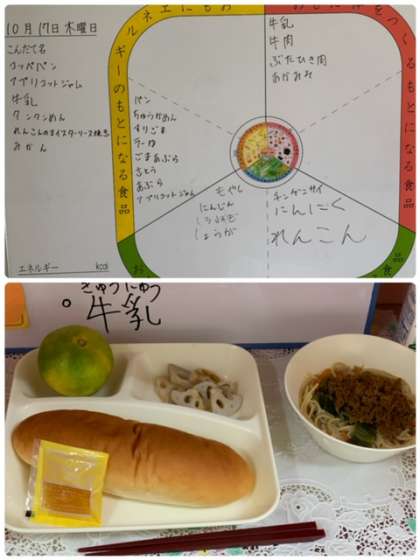 10月17日木曜日
こんだて名
コッペパン
アプリコットジャム
牛乳
タンタンめん
れんこんのオイスターソース炒め
みかん
エネルギー kcal
ギーのもとになる食品
パン
ちゅうかめん
すりごま
ラーゆ
ごまあぶら
さとう
あぶら
アプリコットジャム
つくるもとになる食品
牛乳
牛肉
ぶたひき肉
あかみそ
もやし
にんじん
しょうが
チンゲンサイ
にんにく
れんこん
食品
ぎゅうにゅう
牛乳